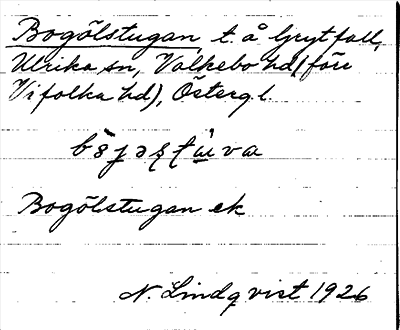 Bogölstugan, t. å Grytfall,
Ulrika sn, Valkebo hd (förr
Vifolka hd), Östergl.
Bogölstugan ek
N. Lindqvist 1926